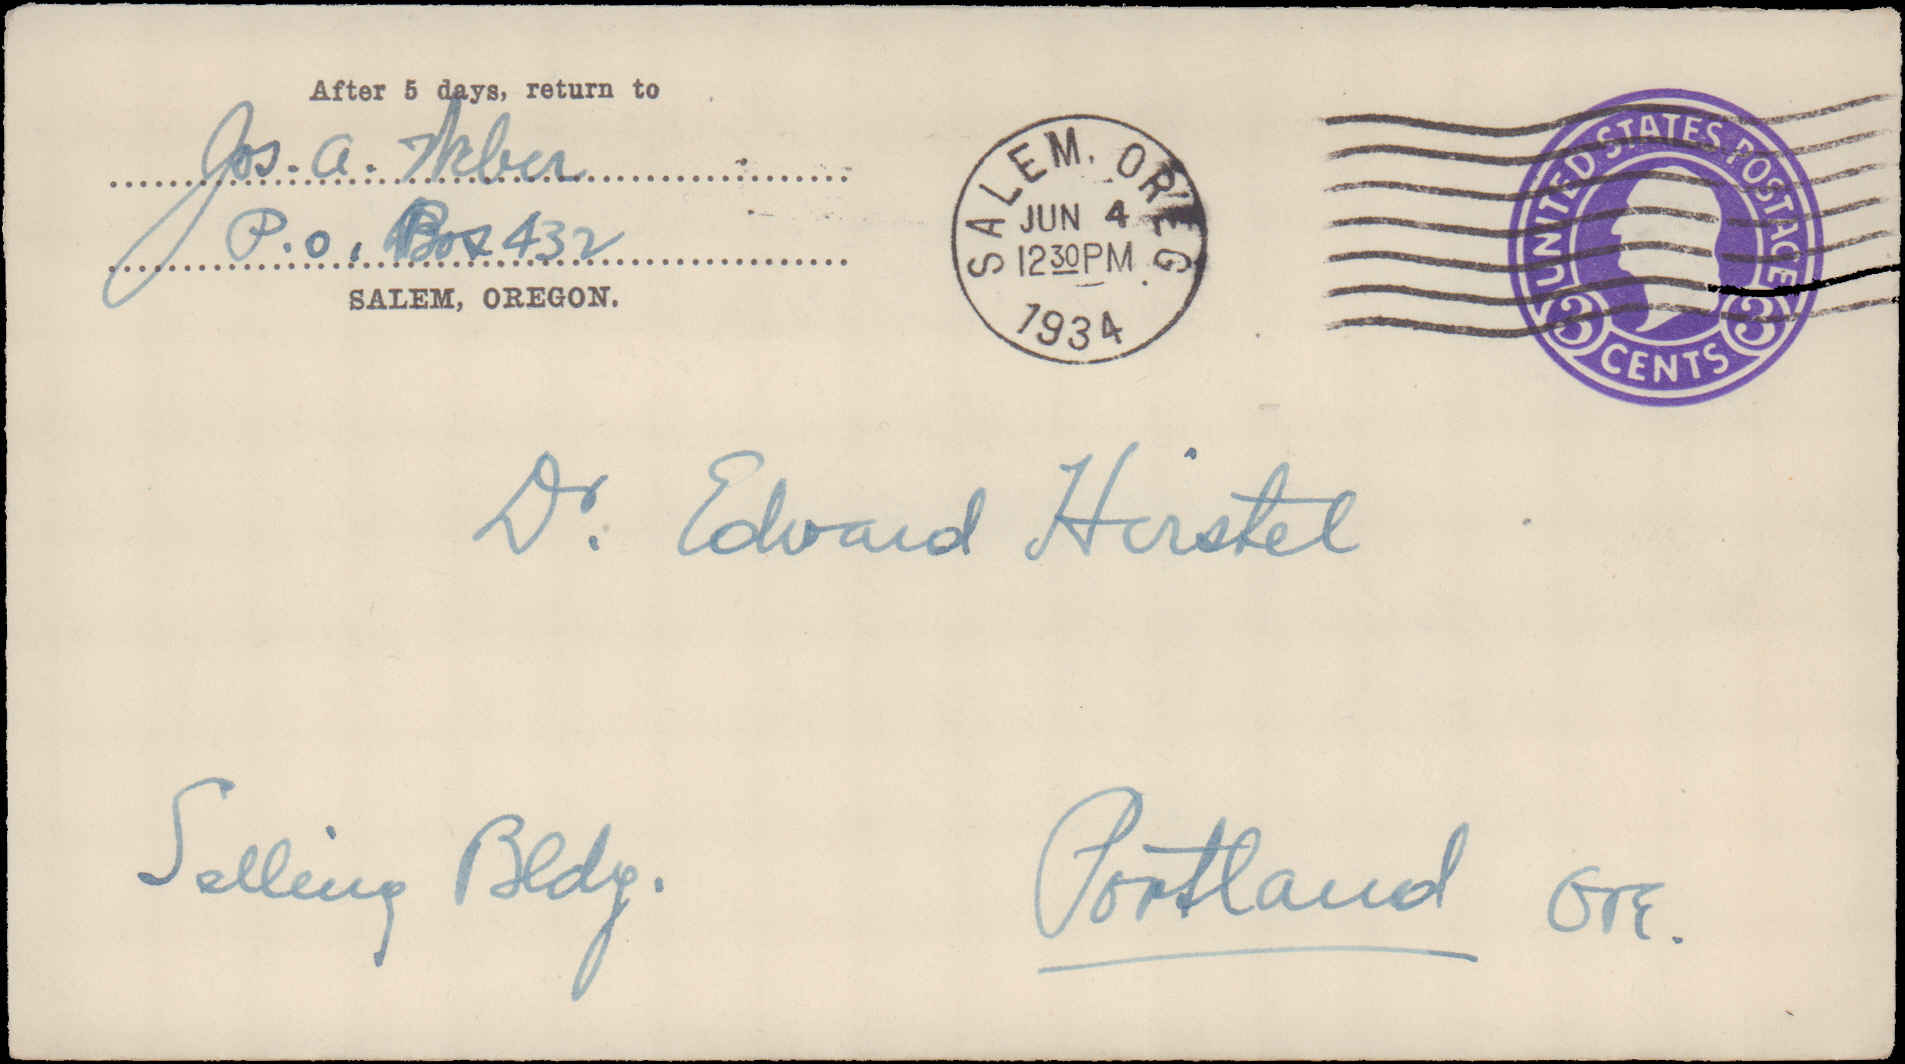 After 5 days, return to
Jos. A. Weber
P.O. Box 432
SALEM, OREGON.
SALEM, OREG
JUN 4
12 30 PM
1934
UNITED STATES POSTAGE
3 CENTS 3
Dr. Edward Hirstel
Selling Bldg.
Portland Ore.